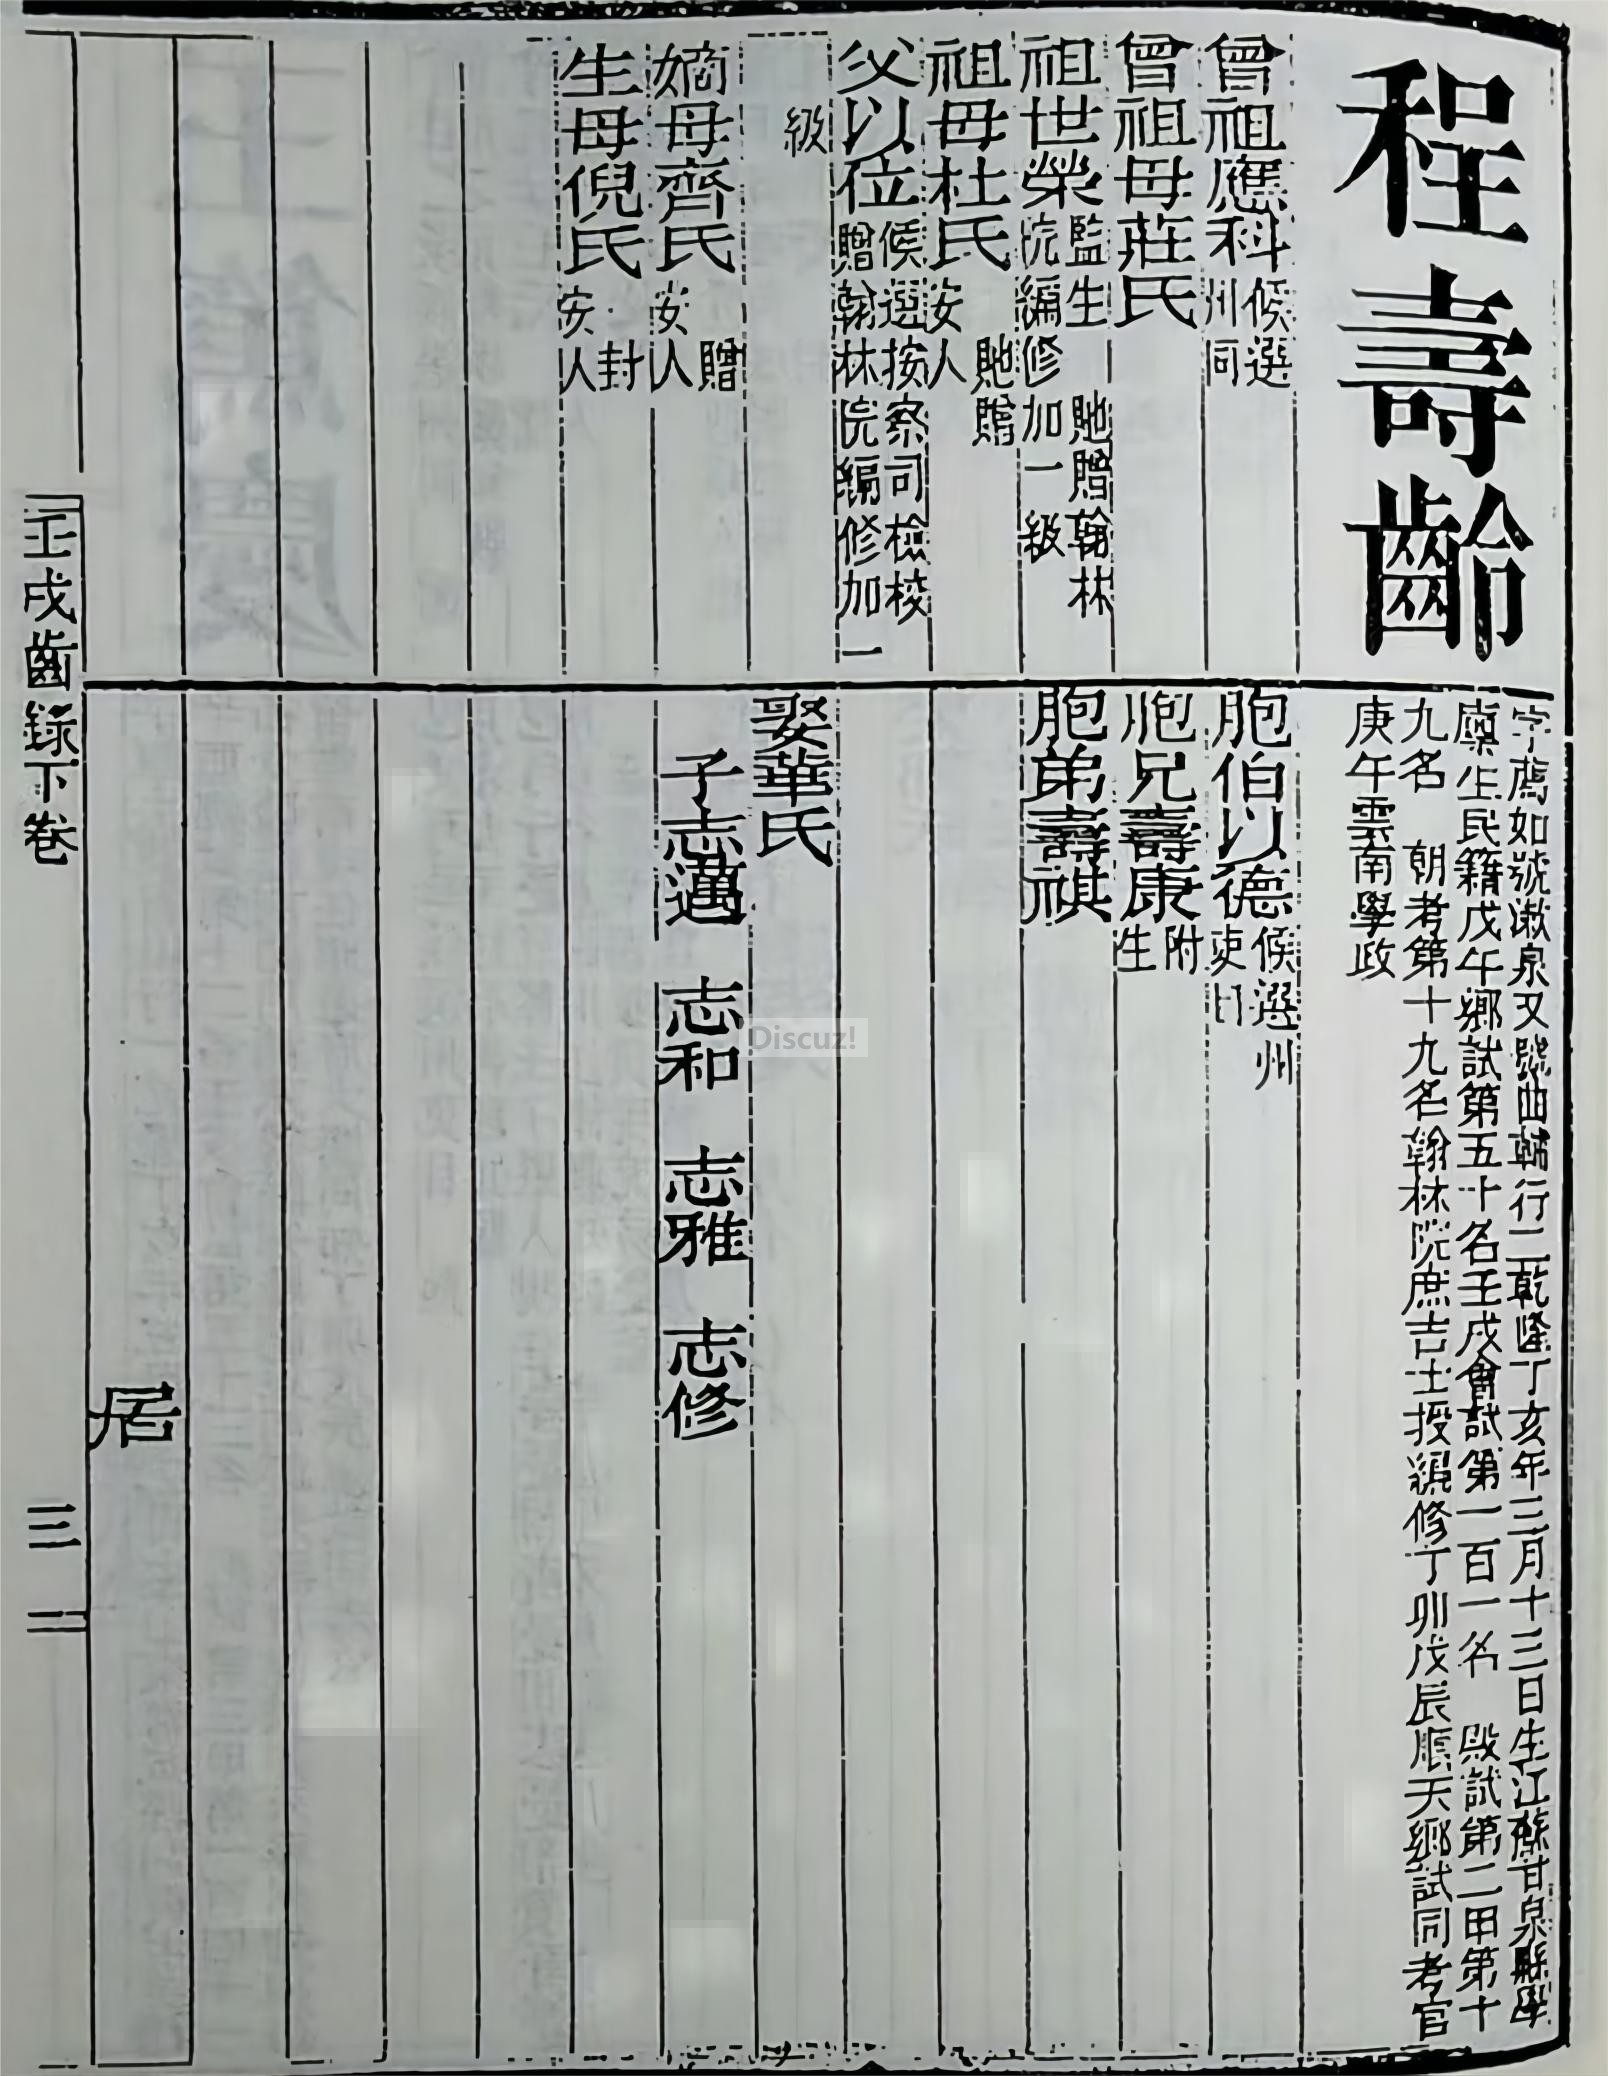 程壽齡
字薦如號漱泉又號曲輔行二乾隆丁亥年三月十三日生江蘇甘泉縣學
廩生民籍戊午鄉試第五十名壬戌會試第一百一名 殿試第二甲第十
九名 朝考第十九名翰林院庶吉士授編修丁卯戊辰順天鄉試同考官
庚午雲南學政
曾祖應科候選州同
曾祖母莊氏
祖世榮監生 貤贈翰林院編修加一級
祖母杜氏 貤贈安人
父以位候選按察司檢校贈翰林院編修加一級
嫡母齊氏 贈安人
生母倪氏 封安人
胞伯以德候選州吏目
胞兄壽康附生
胞弟壽祺
娶華氏
子志邁 志和 志雅 志修
居
壬戌齒錄下卷
三
Discuz!